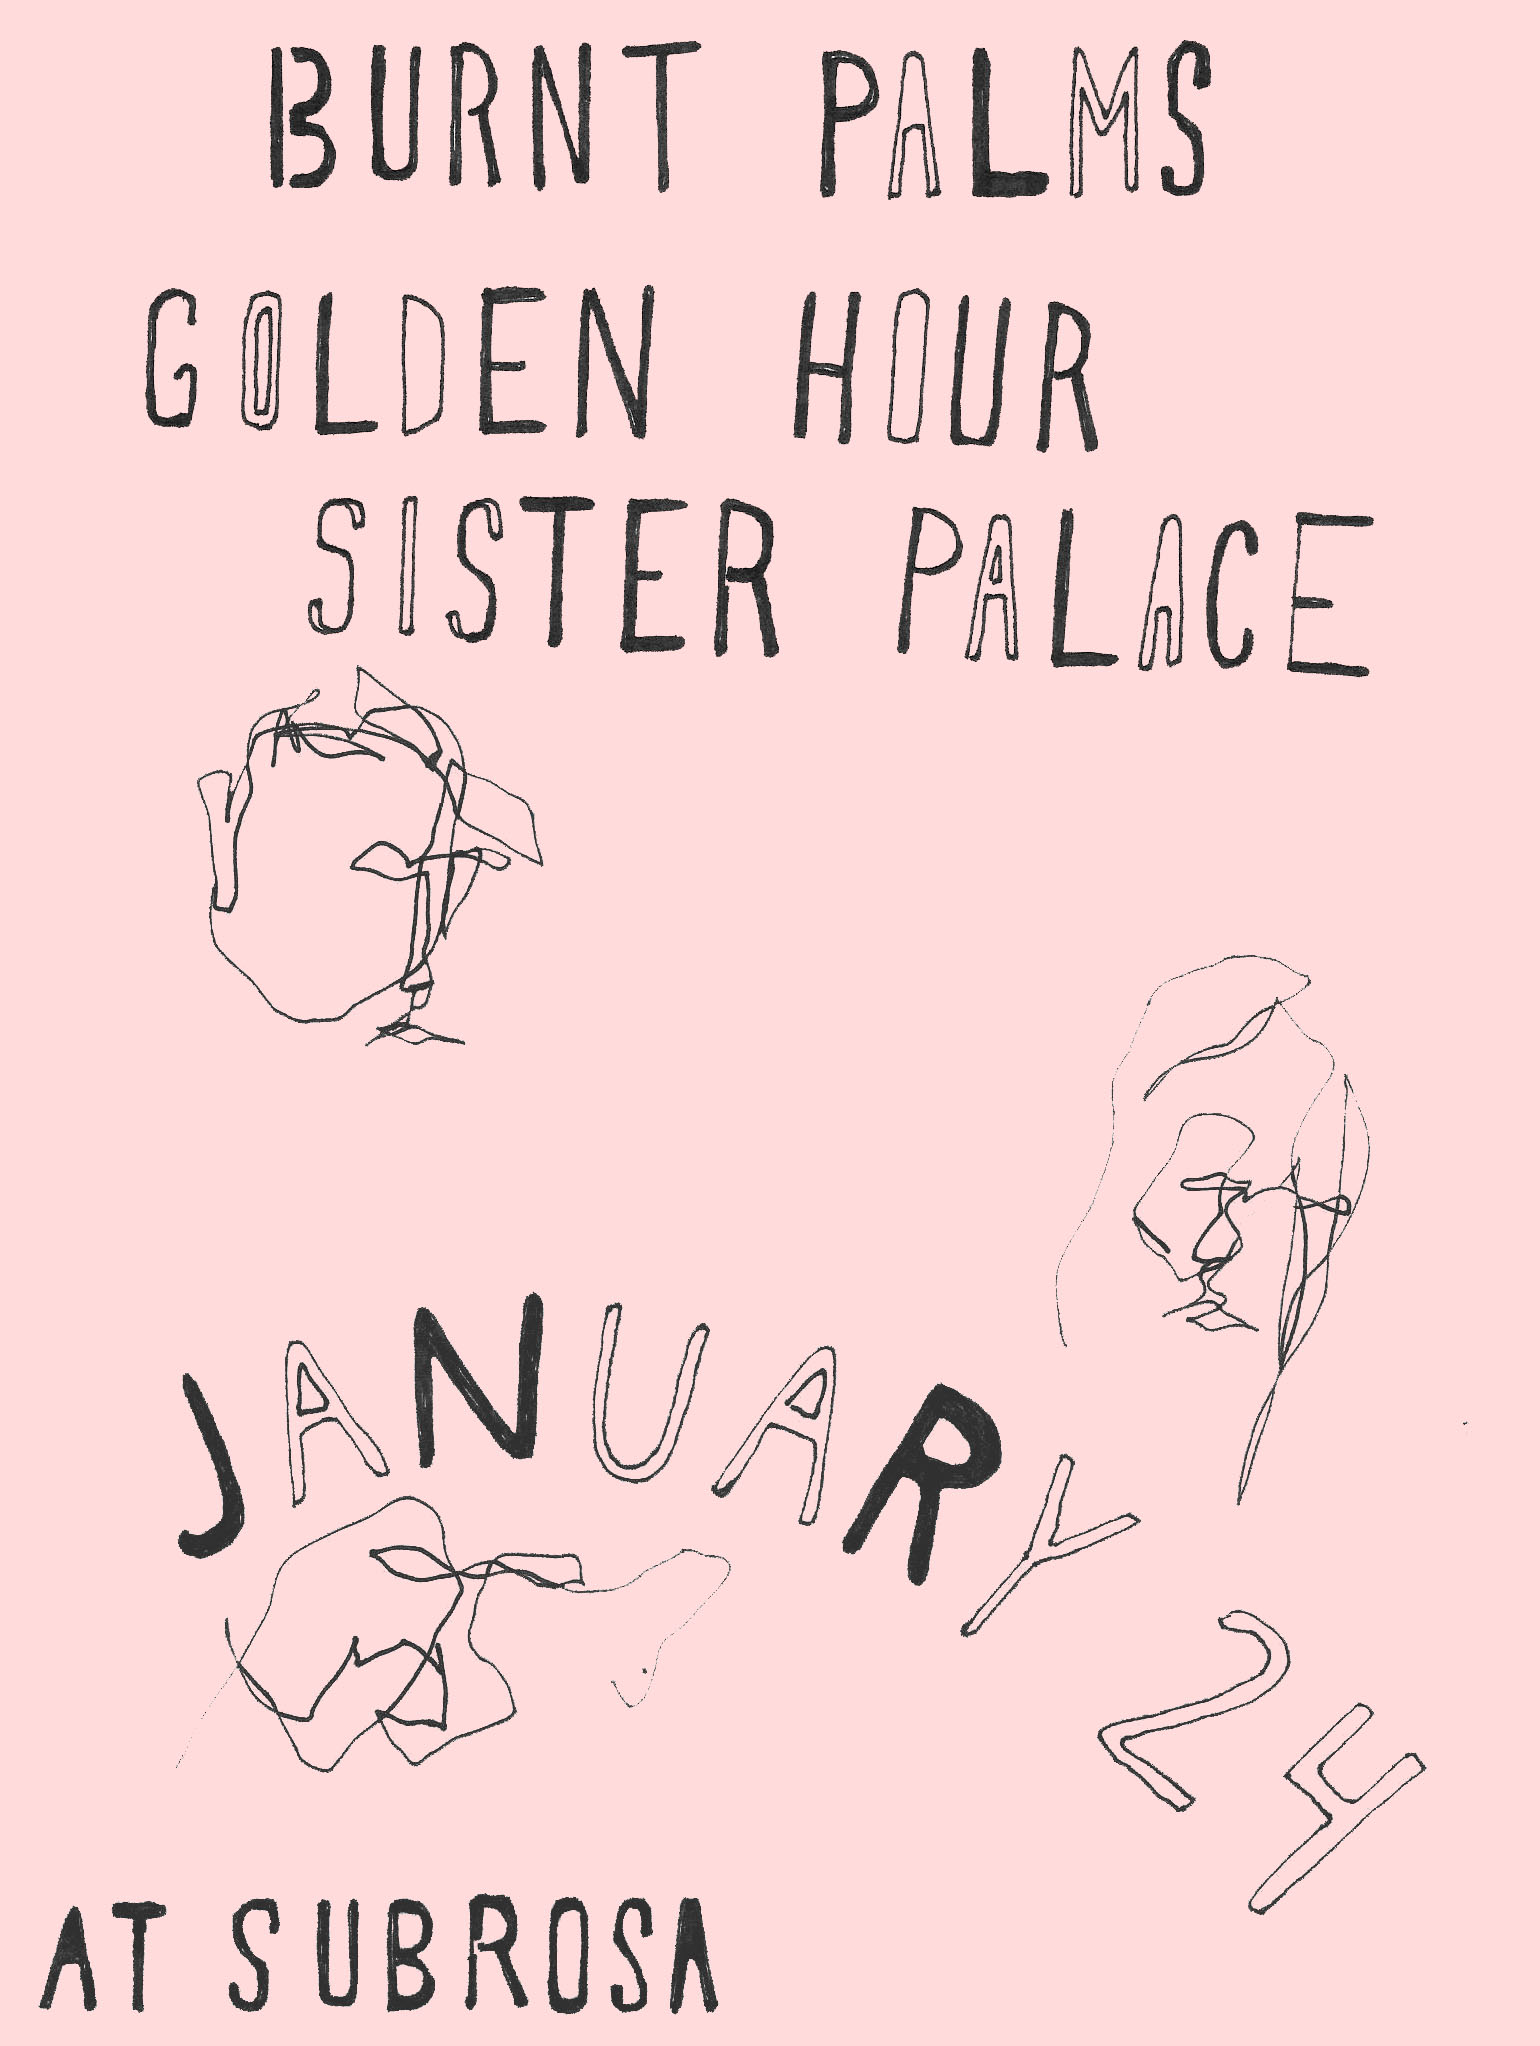 BURNT PALMS
GOLDEN HOUR
SISTER PALACE
JANUARY 24
AT SUBROSA